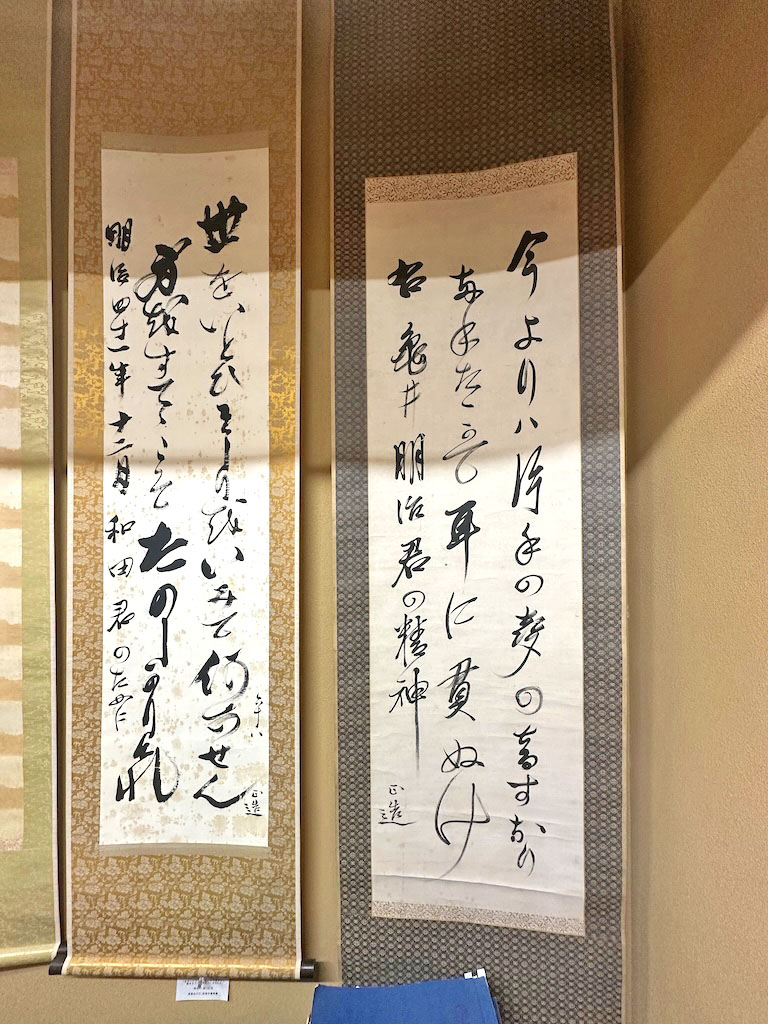 今よりハ の の音す
耳に貫ぬけ
右 亀井明治君の精神
正造
世をいとひそしりをいみて何かせん
身をすてゝこそたのしかりけれ
明治四十一年十二月 和田君のために
六十八
正造